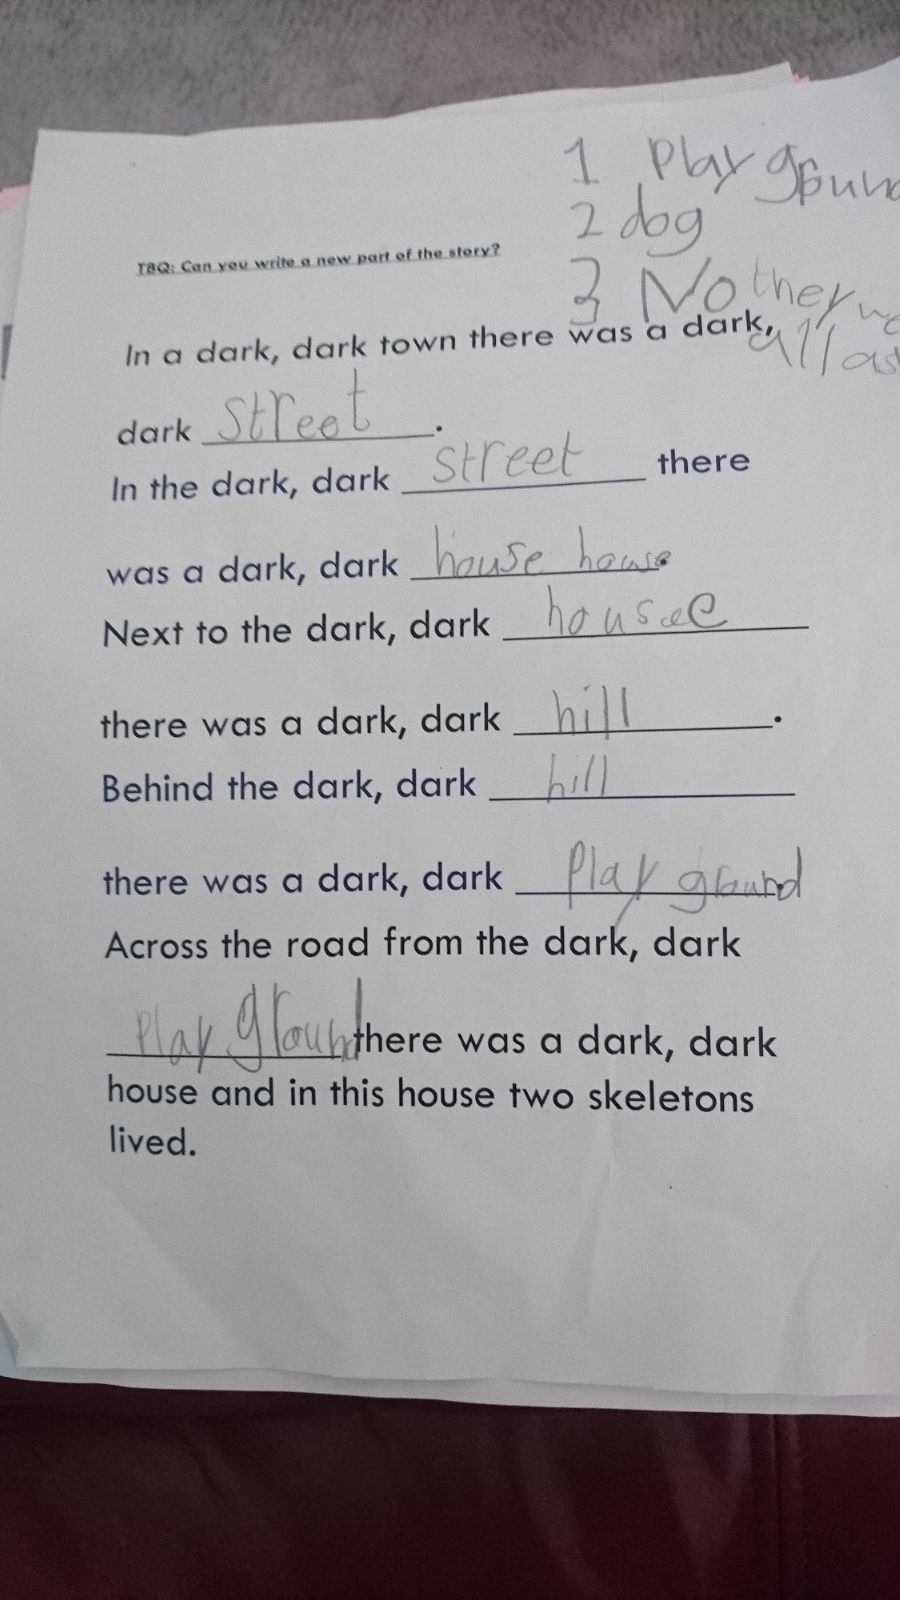 1 Play ground
2 dog
TBQ: Can you write a new part of the story?
3 No they
all as
In a dark, dark town there was a dark,
dark street.
In the dark, dark street there
was a dark, dark house house
Next to the dark, dark house
there was a dark, dark hill.
Behind the dark, dark hill
there was a dark, dark Play ground
Across the road from the dark, dark
Play ground there was a dark, dark
house and in this house two skeletons
lived.